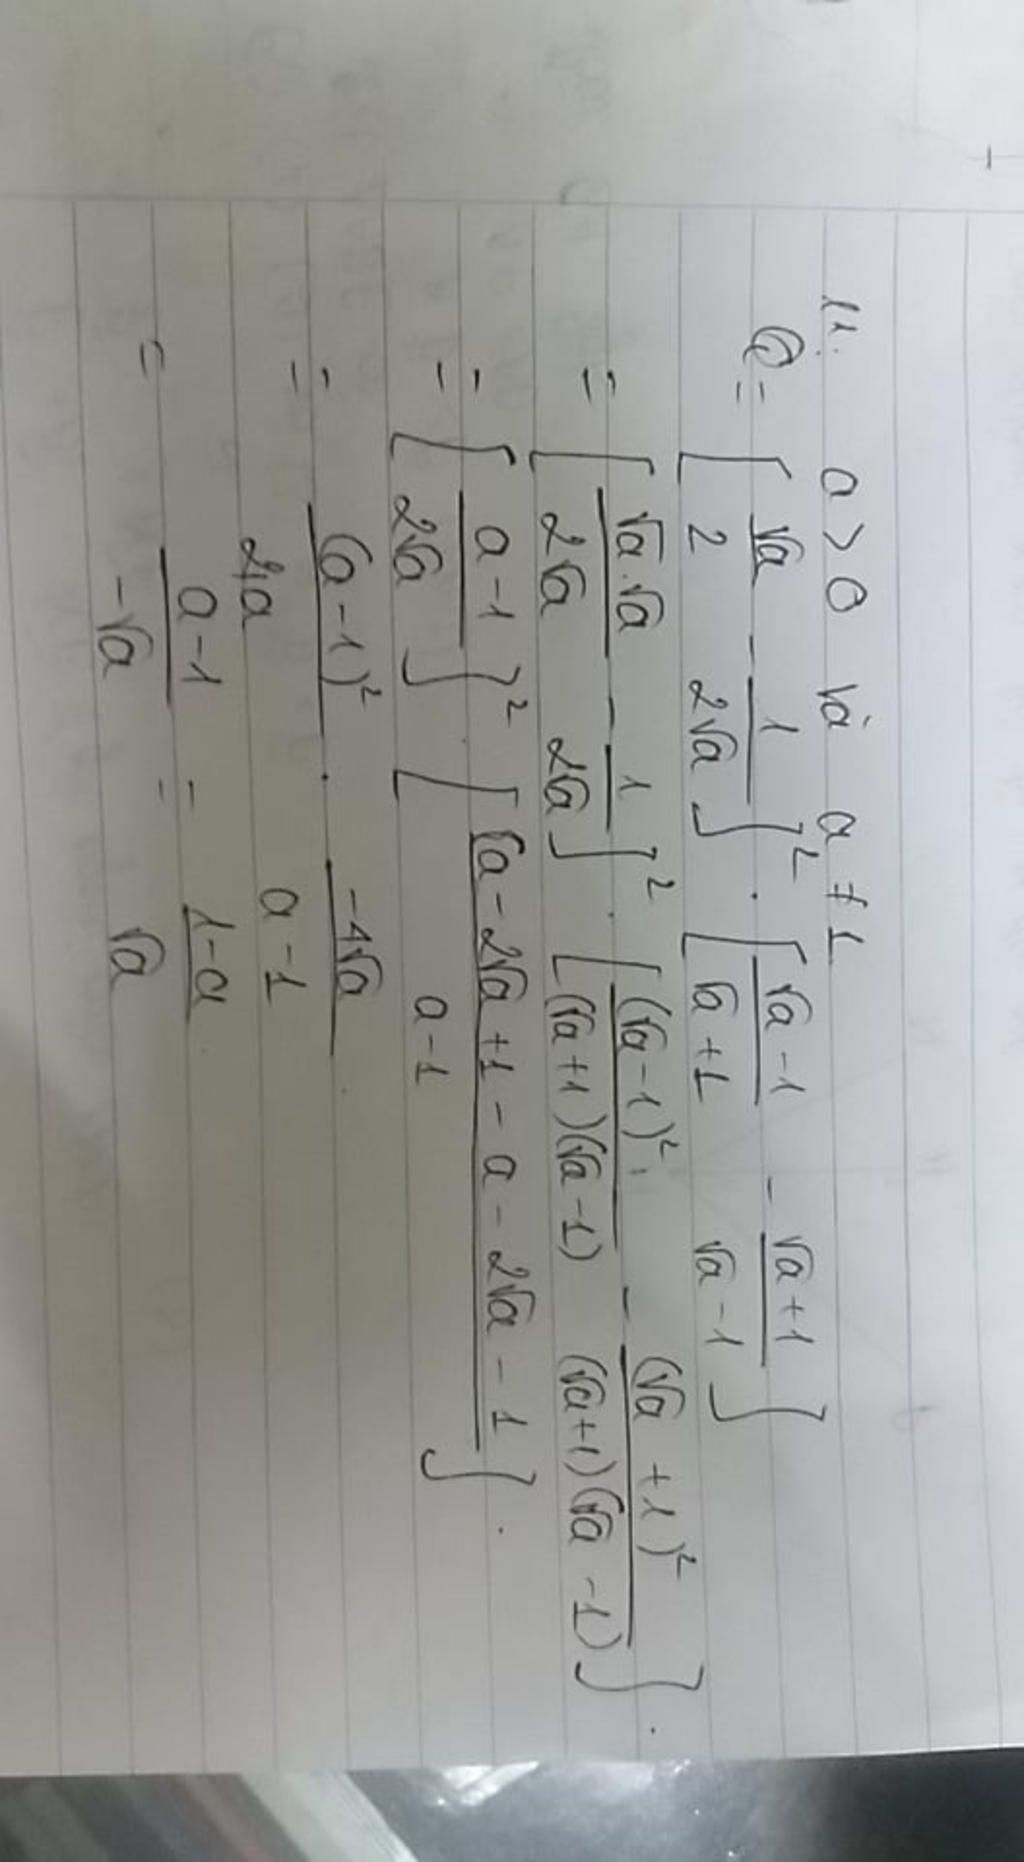 11. a > 0 và a ≠ 1
Q = [√a/2 - 1/2√a]² . [√a-1/√a+1 - √a+1/√a-1]
= [√a.√a/2√a - 1/2√a]² . [(√a-1)²/(√a+1)(√a-1) - (√a+1)²/(√a+1)(√a-1)].
= [a-1/2√a]² . [a-2√a+1-a-2√a-1/a-1].
= (a-1)²/4a . -4√a/a-1.
= a-1/-√a = 1-a/√a.